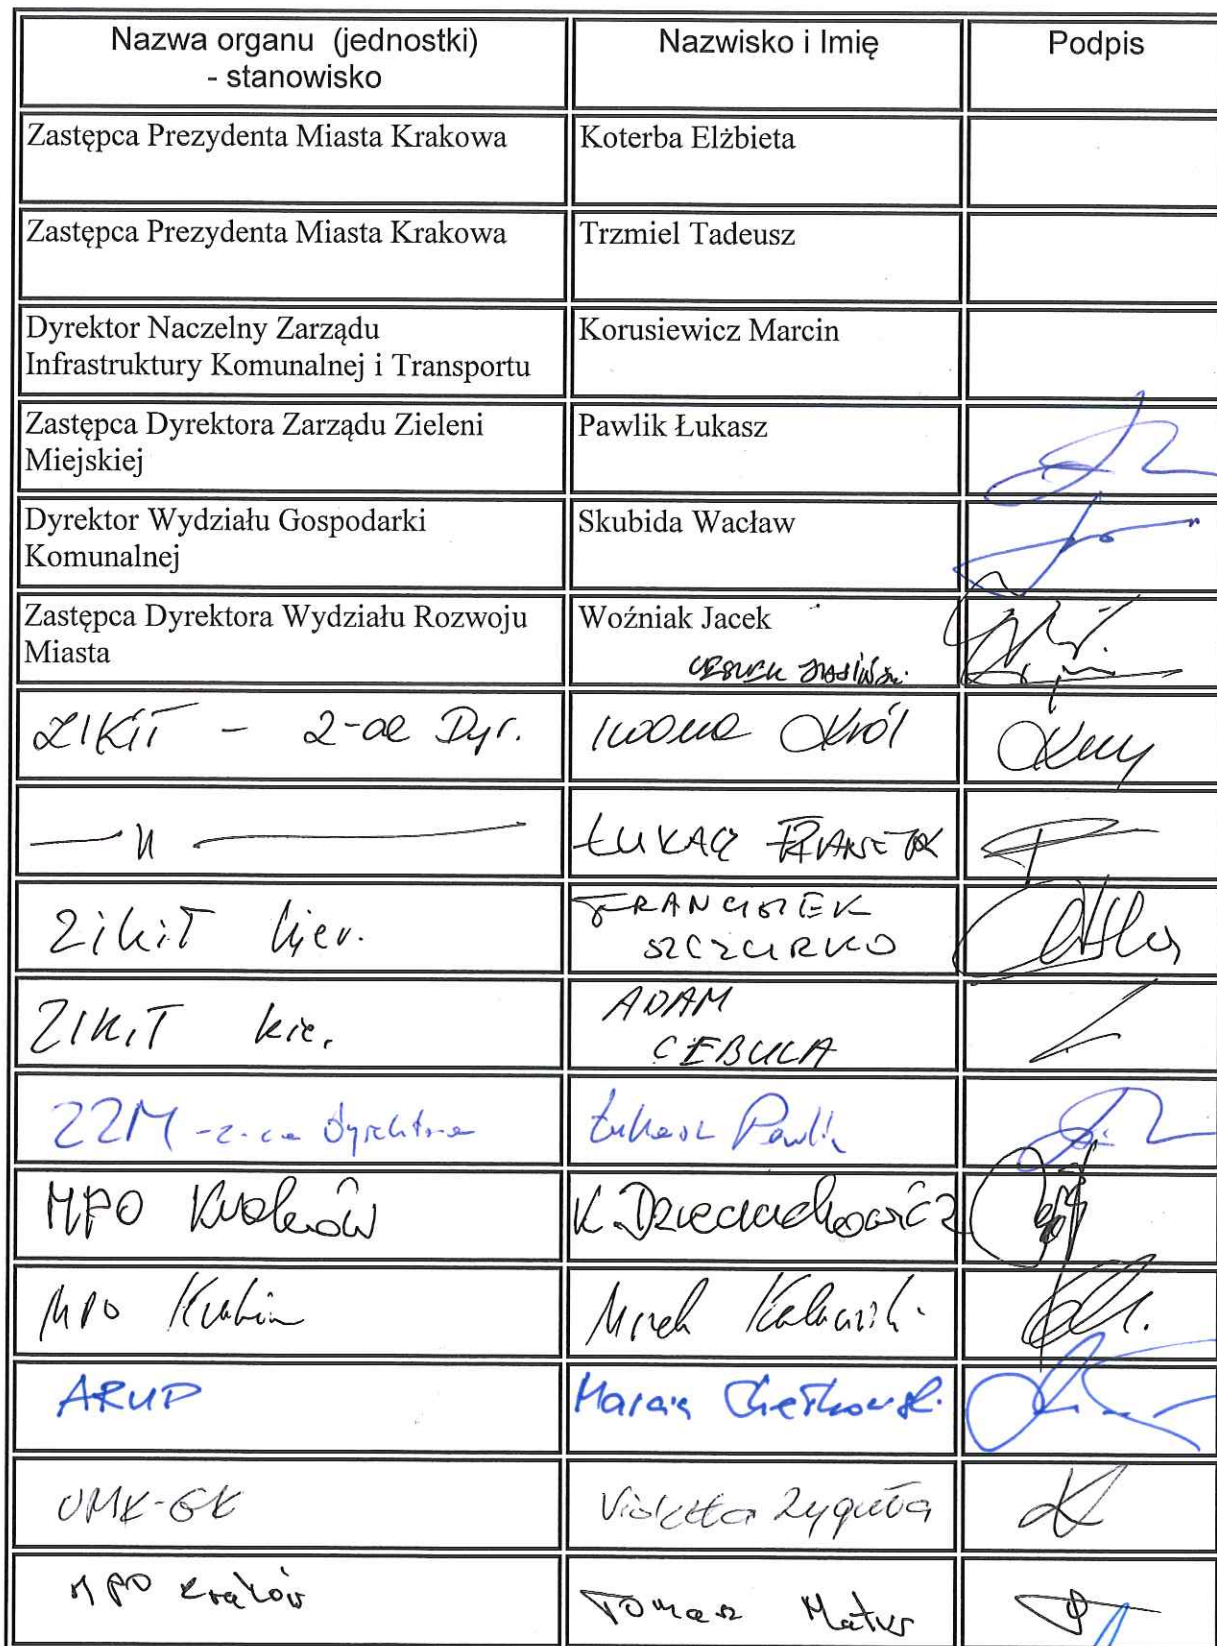 Nazwa organu (jednostki)
- stanowisko
Nazwisko i Imię
Podpis
Zastępca Prezydenta Miasta Krakowa
Koterba Elżbieta
Zastępca Prezydenta Miasta Krakowa
Trzmiel Tadeusz
Dyrektor Naczelny Zarządu
Infrastruktury Komunalnej i Transportu
Korusiewicz Marcin
Zastępca Dyrektora Zarządu Zieleni
Miejskiej
Pawlik Łukasz
Dyrektor Wydziału Gospodarki
Komunalnej
Skubida Wacław
Zastępca Dyrektora Wydziału Rozwoju
Miasta
Woźniak Jacek
ZIKiT - Z-ca Dyr.
Iwona Król
— " —
ŁUKASZ
ZiKiT kier.
FRANCISZEK
SZCZURKO
ZIKiT kie.
ADAM
CEBULA
ZZM - z-ca dyrektora
Łukasz Pawlik
MPO Kraków
K. Dziechciowicz
MPO Kraków
Marek
ARUP
Marcin
UMK-GK
Violetta Zyguła
MPO Kraków
Tomasz Matus